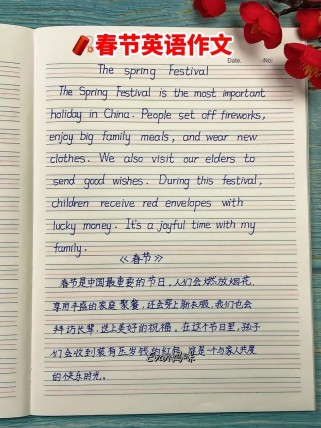 春节英语作文
Date. No.
The spring Festival
The Spring Festival is the most important
holiday in China. People set off fireworks,
enjoy big family meals, and wear new
clothes. We also visit our elders to
send good wishes. During this festival,
children receive red envelopes with
lucky money. It's a joyful time with my
family.
《春节》
春节是中国最重要的节日,人们会燃放烟花,
享用丰盛的家庭聚餐,还会穿上新衣服,我们也会
拜访长辈,送上美好的祝福,在这个节日里,孩子
们会收到装有压岁钱的红包,这是一个与家人共度
的快乐时光。